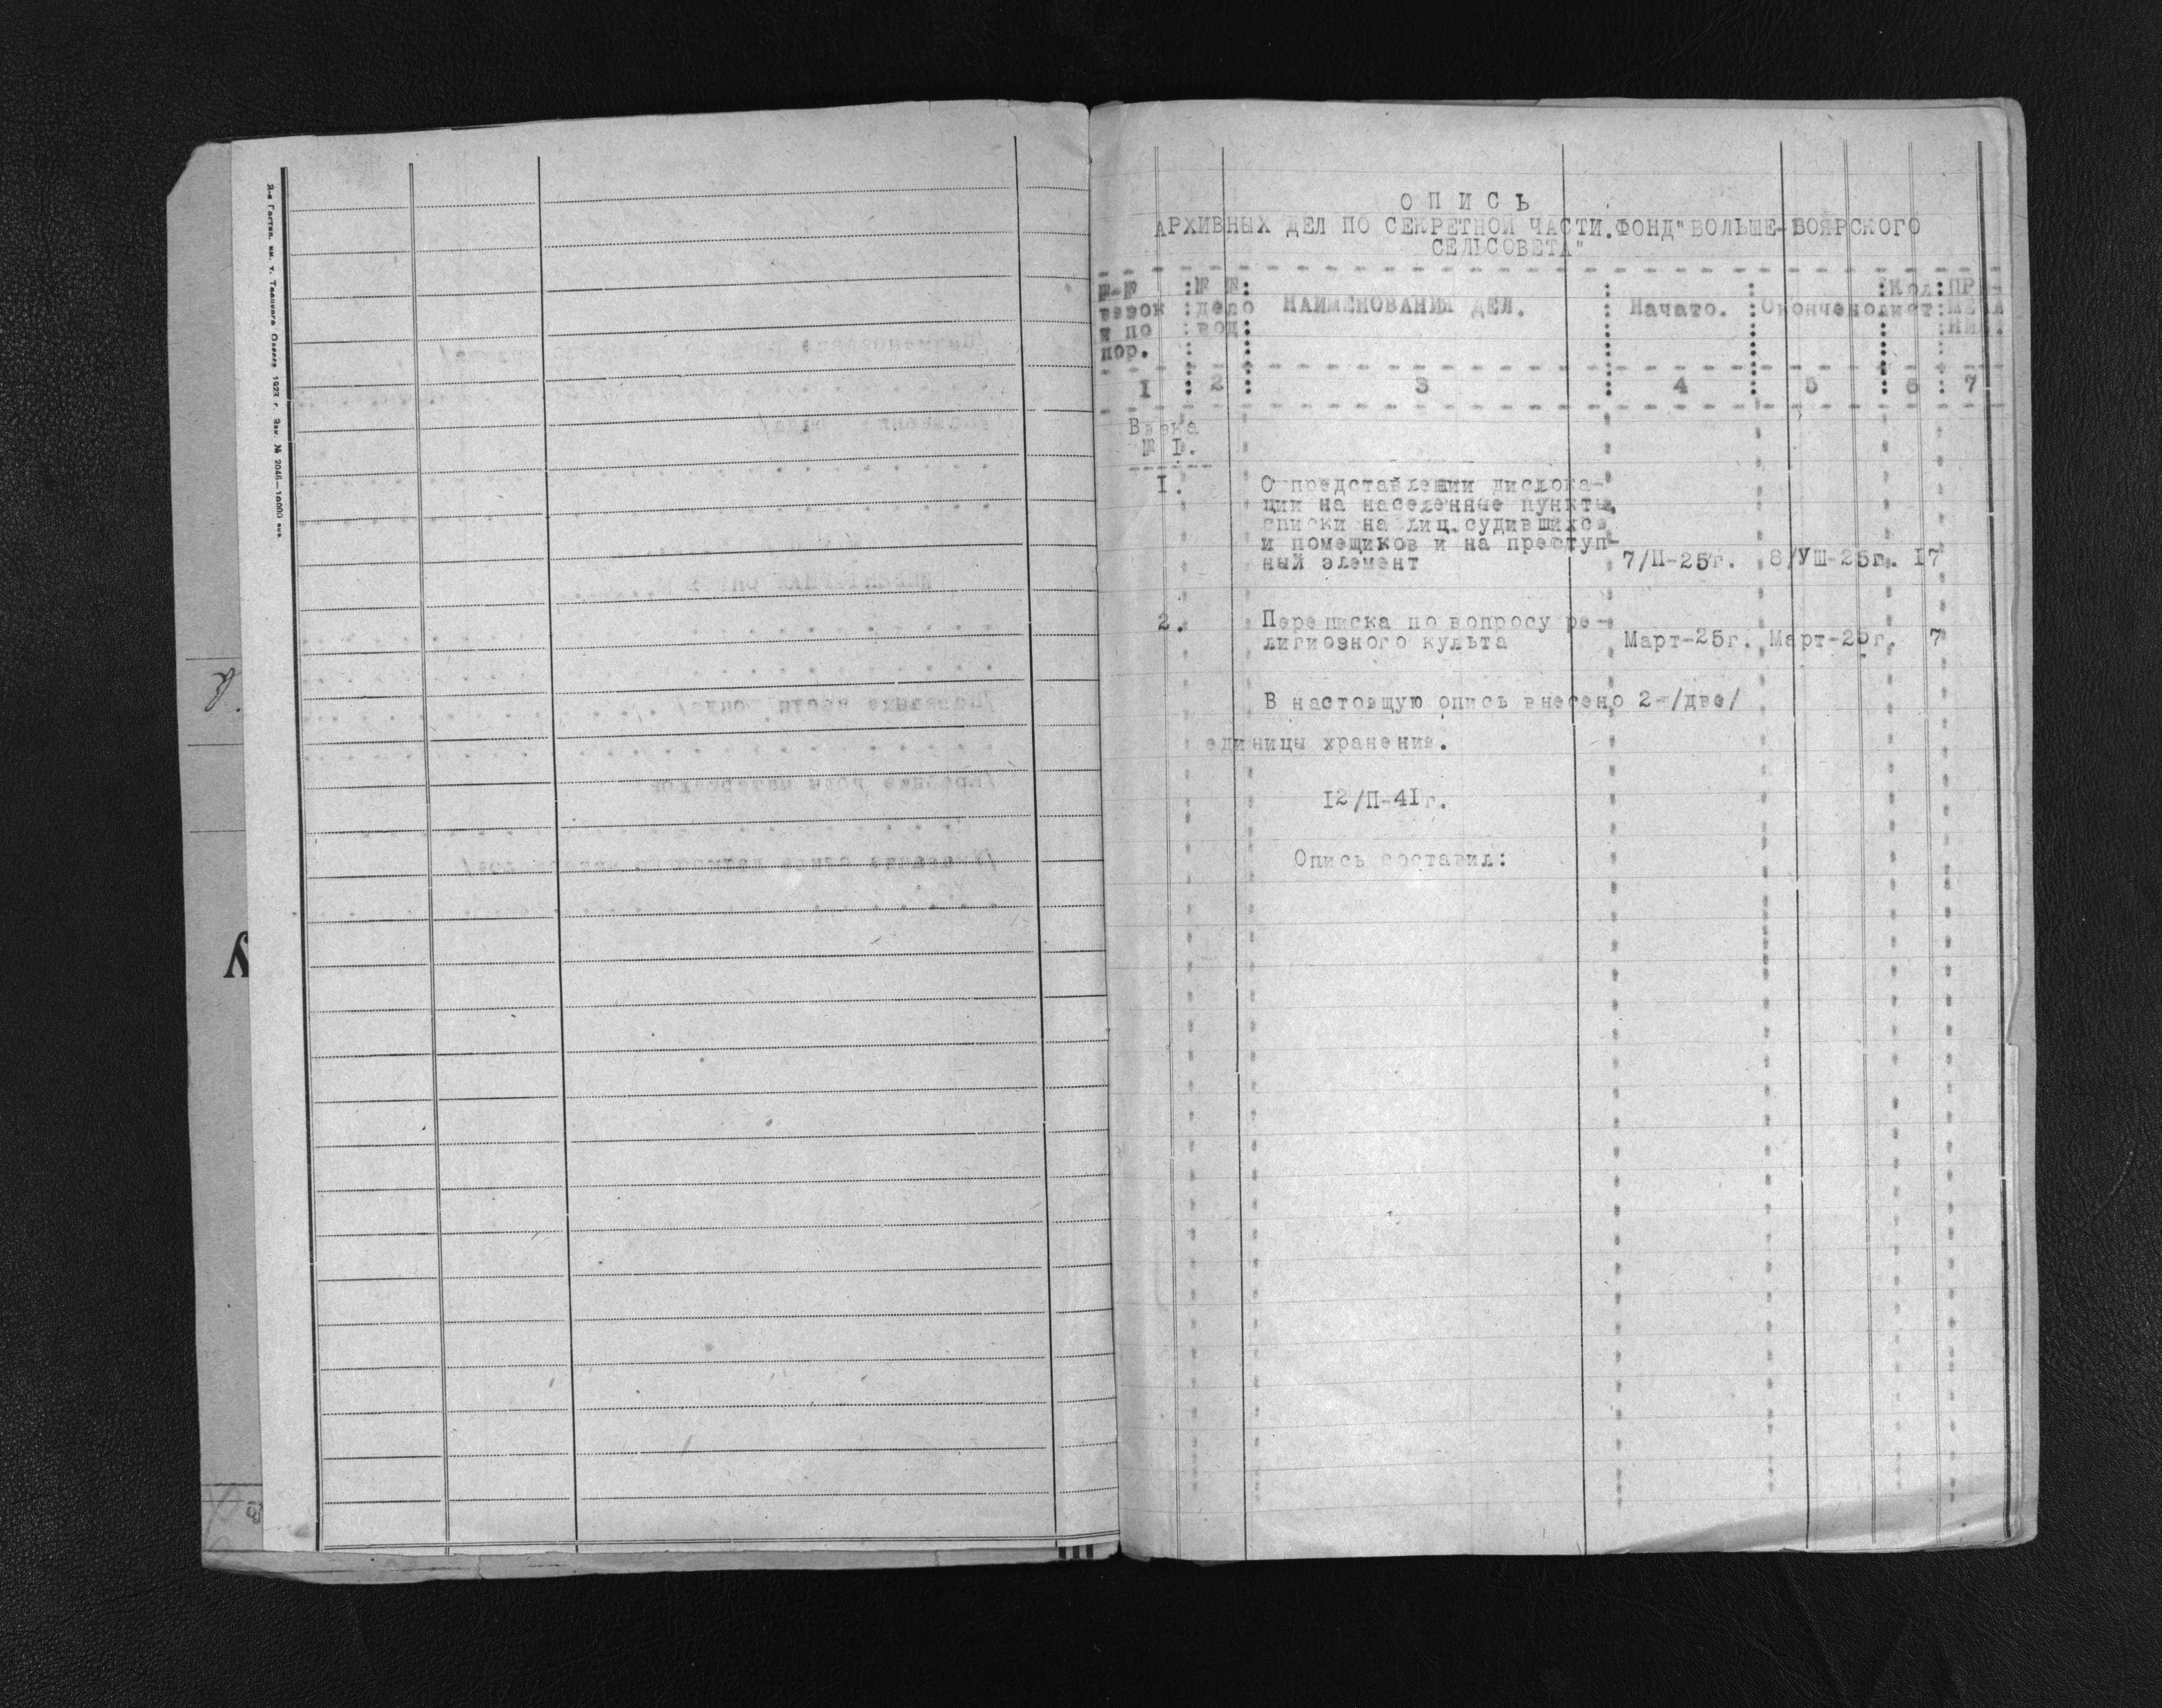 2-я Гостип. им. т. Троцкого Одесса 1923 г. Зак. № 2046—10000 экз.
ОПИСЬ
АРХИВНЫХ ДЕЛ ПО СЕКРЕТНОЙ ЧАСТИ.ФОНД"БОЛЬШЕ-БОЯРСКОГО
СЕЛЬСОВЕТА"
№-№ вязок и по пор.
№ № дело вод
НАИМЕНОВАНИЯ ДЕЛ.
Начато.
Окончено
Кол лист
ПРИ- МЕЧА НИЕ.
1 2 3 4 5 6 7
Вязка
№ I.
I. О представлении дислока-
ции на населенные пункты,
списки на лиц.судившихся
и помещиков и на преступ-
ный элемент 7/П-25г. 8/УШ-25г. I7
2. Переписка по вопросу ре-
лигиозного культа Март-25г. Март-25г. 7
В настоящую опись внесено 2-/две/
единицы хранения.
I2/П-4Iг.
Опись составил: